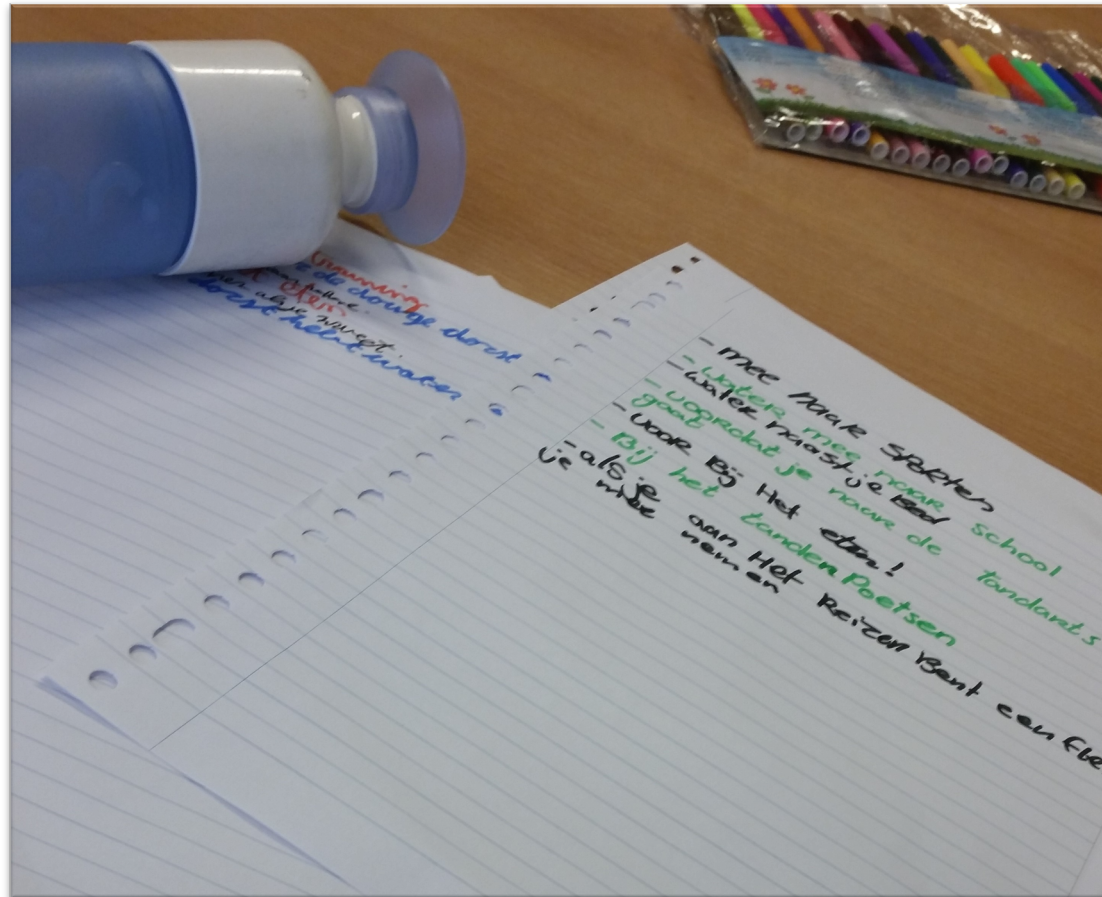 de droge dorst
als je zweet.
dorst hebt water
- mee naar sporten
- water mee naar school
- water naast je Bed
- voordat je naar de tandarts
gaat
- voor Bij Het eten!
- Bij het tanden Poetsen
- als je aan Het Reizen Bent een fle
je mee nemen